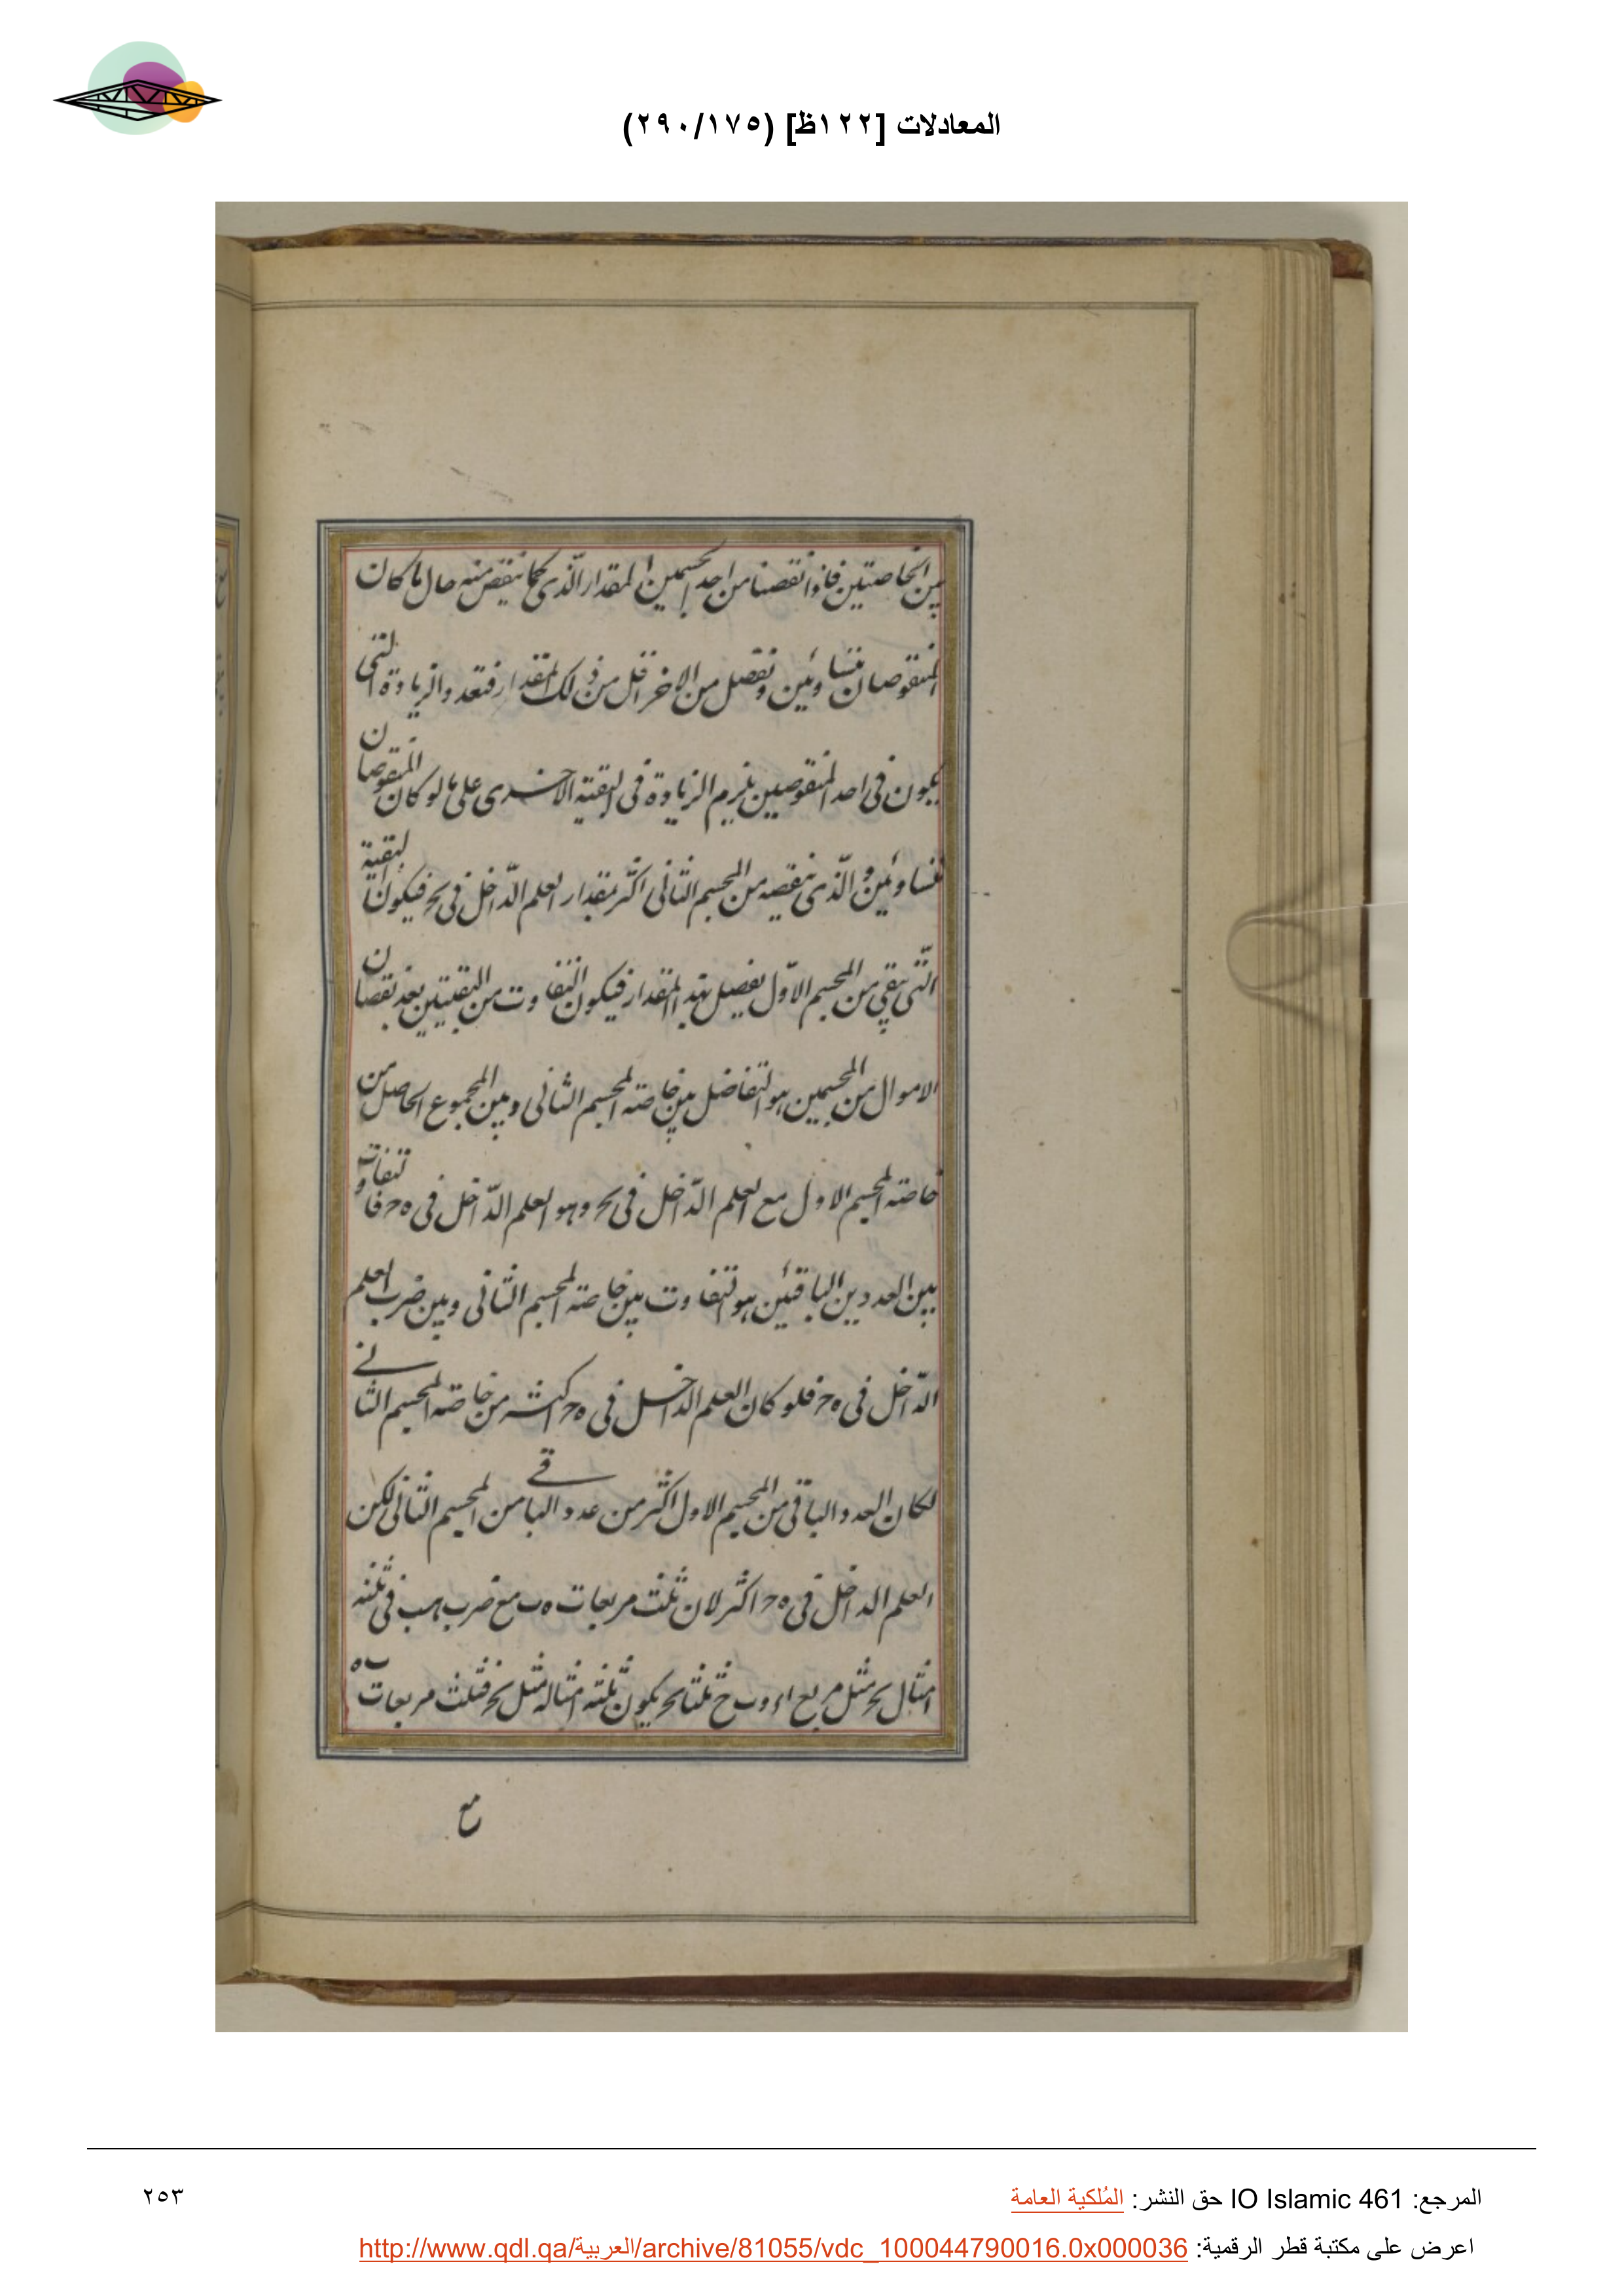 المعادلات [١٢٢ظ] (٢٩٠/١٧٥)
بين الخاصتين فاذا نقصنا من احد المجسمين المقدار الذى كما ننقص منه حال ما كان
المنقوصان متساويين ونقصل من الاخر اقل من ذلك المقدار فتعد والزيادة التى
يكون فى احد المنقوصين يلزم الزيادة فى البقية الاخرى على ما لو كان المنقوصان
متساويين والذى ننقصه من المجسم الثانى اكثر بمقدار العلم الداخل فى بح فيكون البقية
التى تبقى من المجسم الاول يفضل بهذا المقدار فيكون التفاوت من البقيتين بعد نقصان
الاموال من المجسمين هو التفاضل بين خاصته المجسم الثانى وبين المجموع الحاصل من
خاصته المجسم الاول مع العلم الداخل فى بح وهو العلم الداخل فى ه ح فالتفاوت
بين العددين الباقيين هو التفاوت بين خاصته المجسم الثانى وبين ضرب العلم
الداخل فى ه ح فلو كان العلم الداخل فى ه ح اكثر من خاصته المجسم الثانى
لكان العدد الباقى من المجسم الاول اكثر من عدد الباقى من المجسم الثانى لكن
العلم الداخل فى ه ح اكثر لان ثلث مربعات ه ب مع ضرب ه ب فى ثلثه
امثال بح مثل مربع اء و ب ح ثلثا بح يكون ثلثه امثاله مثل بح فثلث مربعات ب ه
مع
المرجع: IO Islamic 461 حق النشر: المُلكية العامة
٢٥٣
اعرض على مكتبة قطر الرقمية: http://www.qdl.qa/العربية/archive/81055/vdc_100044790016.0x000036